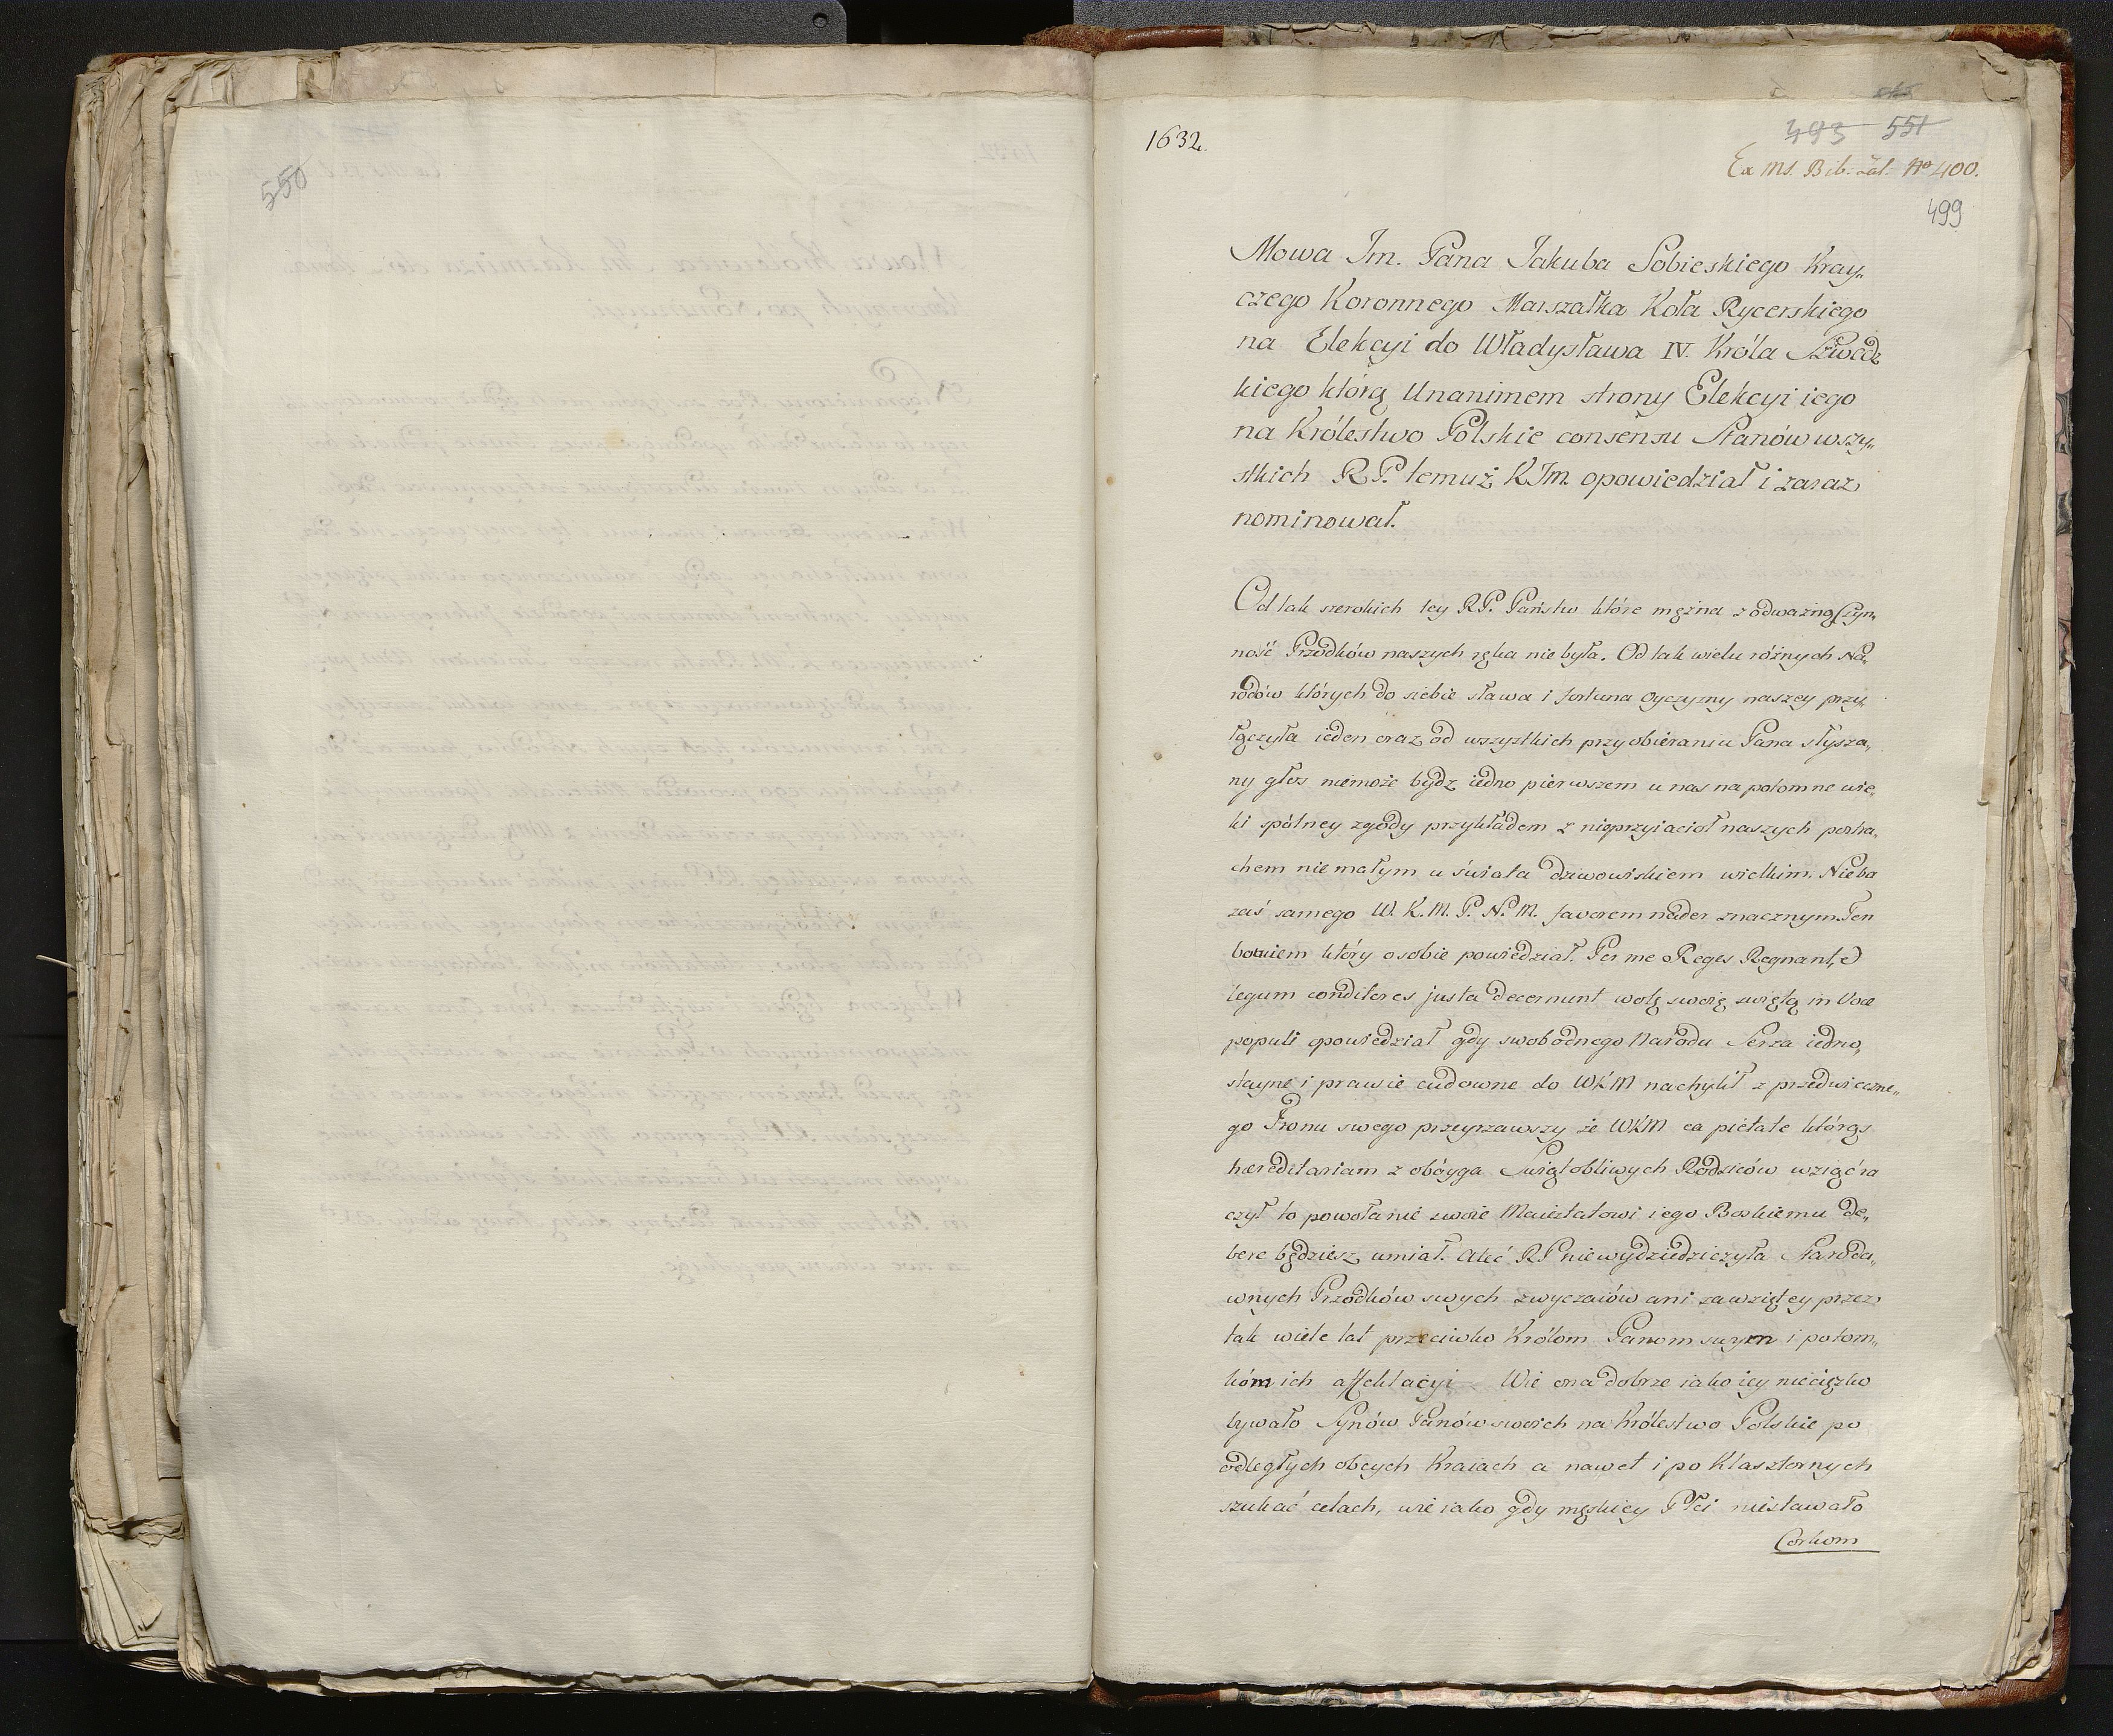 550
1632.
493 551
Ex Ms. Bib: Zał: No 400.
499
Mowa Jm. Pana Jakuba Sobieskiego Kray„
czego Koronnego Marszałka Koła Rycerskiego
na Elekcyi do Władysława IV. Króla Szwedz
kiego którą Unanimem strony Elekcyi iego
na Królestwo Polskie consensu Stanów wszy„
stkich R.P. temuż K Jm. opowiedział i zaraz
nominował.
Od tak szerokich tey RP. Państw które mężna z odważną
ność Przodków naszych ręka nie była. Od tak wielu różnych Na„
rodów których do siebie sława i fortuna Oyczyzny naszey przy„
łączyła ieden oraz od wszystkich przy obieraniu Pana słysza„
ny głos niemoże bydz iedno pierwszem u nas na potomne wie„
ki spólney zgody przykładem z nieprzyiaciół naszych postra„
chem nie małym u świata dziwowiskiem wielkim. Nieba
zaś samego W. K. M. P. N. M. favorem nader znacznym. Ten
bowiem który o sobie powiedział. Per me Reges Regnant, &
legum conditores justa decernunt wolę swoię swiętą in Voce
populi opowiedział gdy swobodnego Narodu Serza iedno„
stayne i prawie cudowne do WKM nachylił z przedwieczne„
go Tronu swego przeyrzawszy że WKM ea pietate którąś
hæreditariam z obóyga Swiętobliwych Rodziców wziąć ra
czył to powołanie swoie Maiestatowi iego Boskiemu de„
bere będziesz umiał. Ałeć RP niewydziedziczyła Staroda„
wnych Przodków swych zwyczaiów ani zawziętey przez
tak wiele lat przeciwko Królom Panom swym i potom„
kóm ich affektacyi Wie ona dobrze iako iey nieciężko
bywało Synów Panów swoich na Królestwo Polskie po
odległych obcych Kraiach a nawet i po Klasztornych
szukać celach, wie iako gdy męskiey Płci niestawało
Corkom